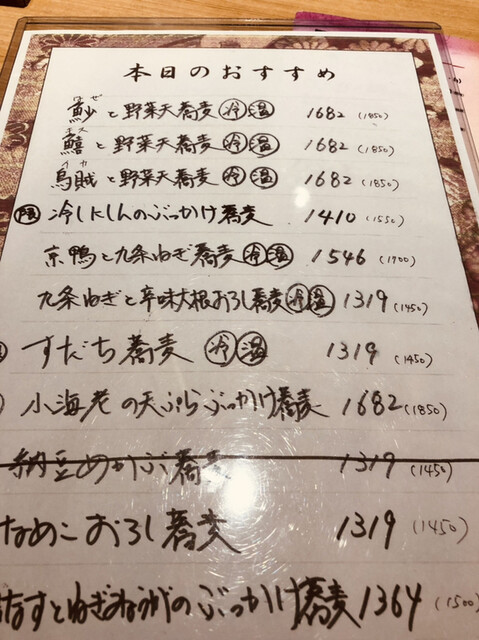 本日のおすすめ
はぜ
魦と野菜天蕎麦 冷 温 1682 (1850)
キス
鱚と野菜天蕎麦 冷 温 1682 (1850)
イカ
烏賊と野菜天蕎麦 冷 温 1682 (1850)
冷しにしんのぶっかけ蕎麦 1410 (1550)
京鴨と九条ねぎ蕎麦 冷 温 1546 (1700)
九条ねぎと辛味大根おろし蕎麦 冷 温 1319 (1450)
すだち蕎麦 冷 温 1319 (1450)
小海老の天ぷらぶっかけ蕎麦 1682 (1850)
納豆めかぶ蕎麦 1319 (1450)
なめこおろし蕎麦 1319 (1450)
なすとねぎみょうがのぶっかけ蕎麦 1364 (1500)